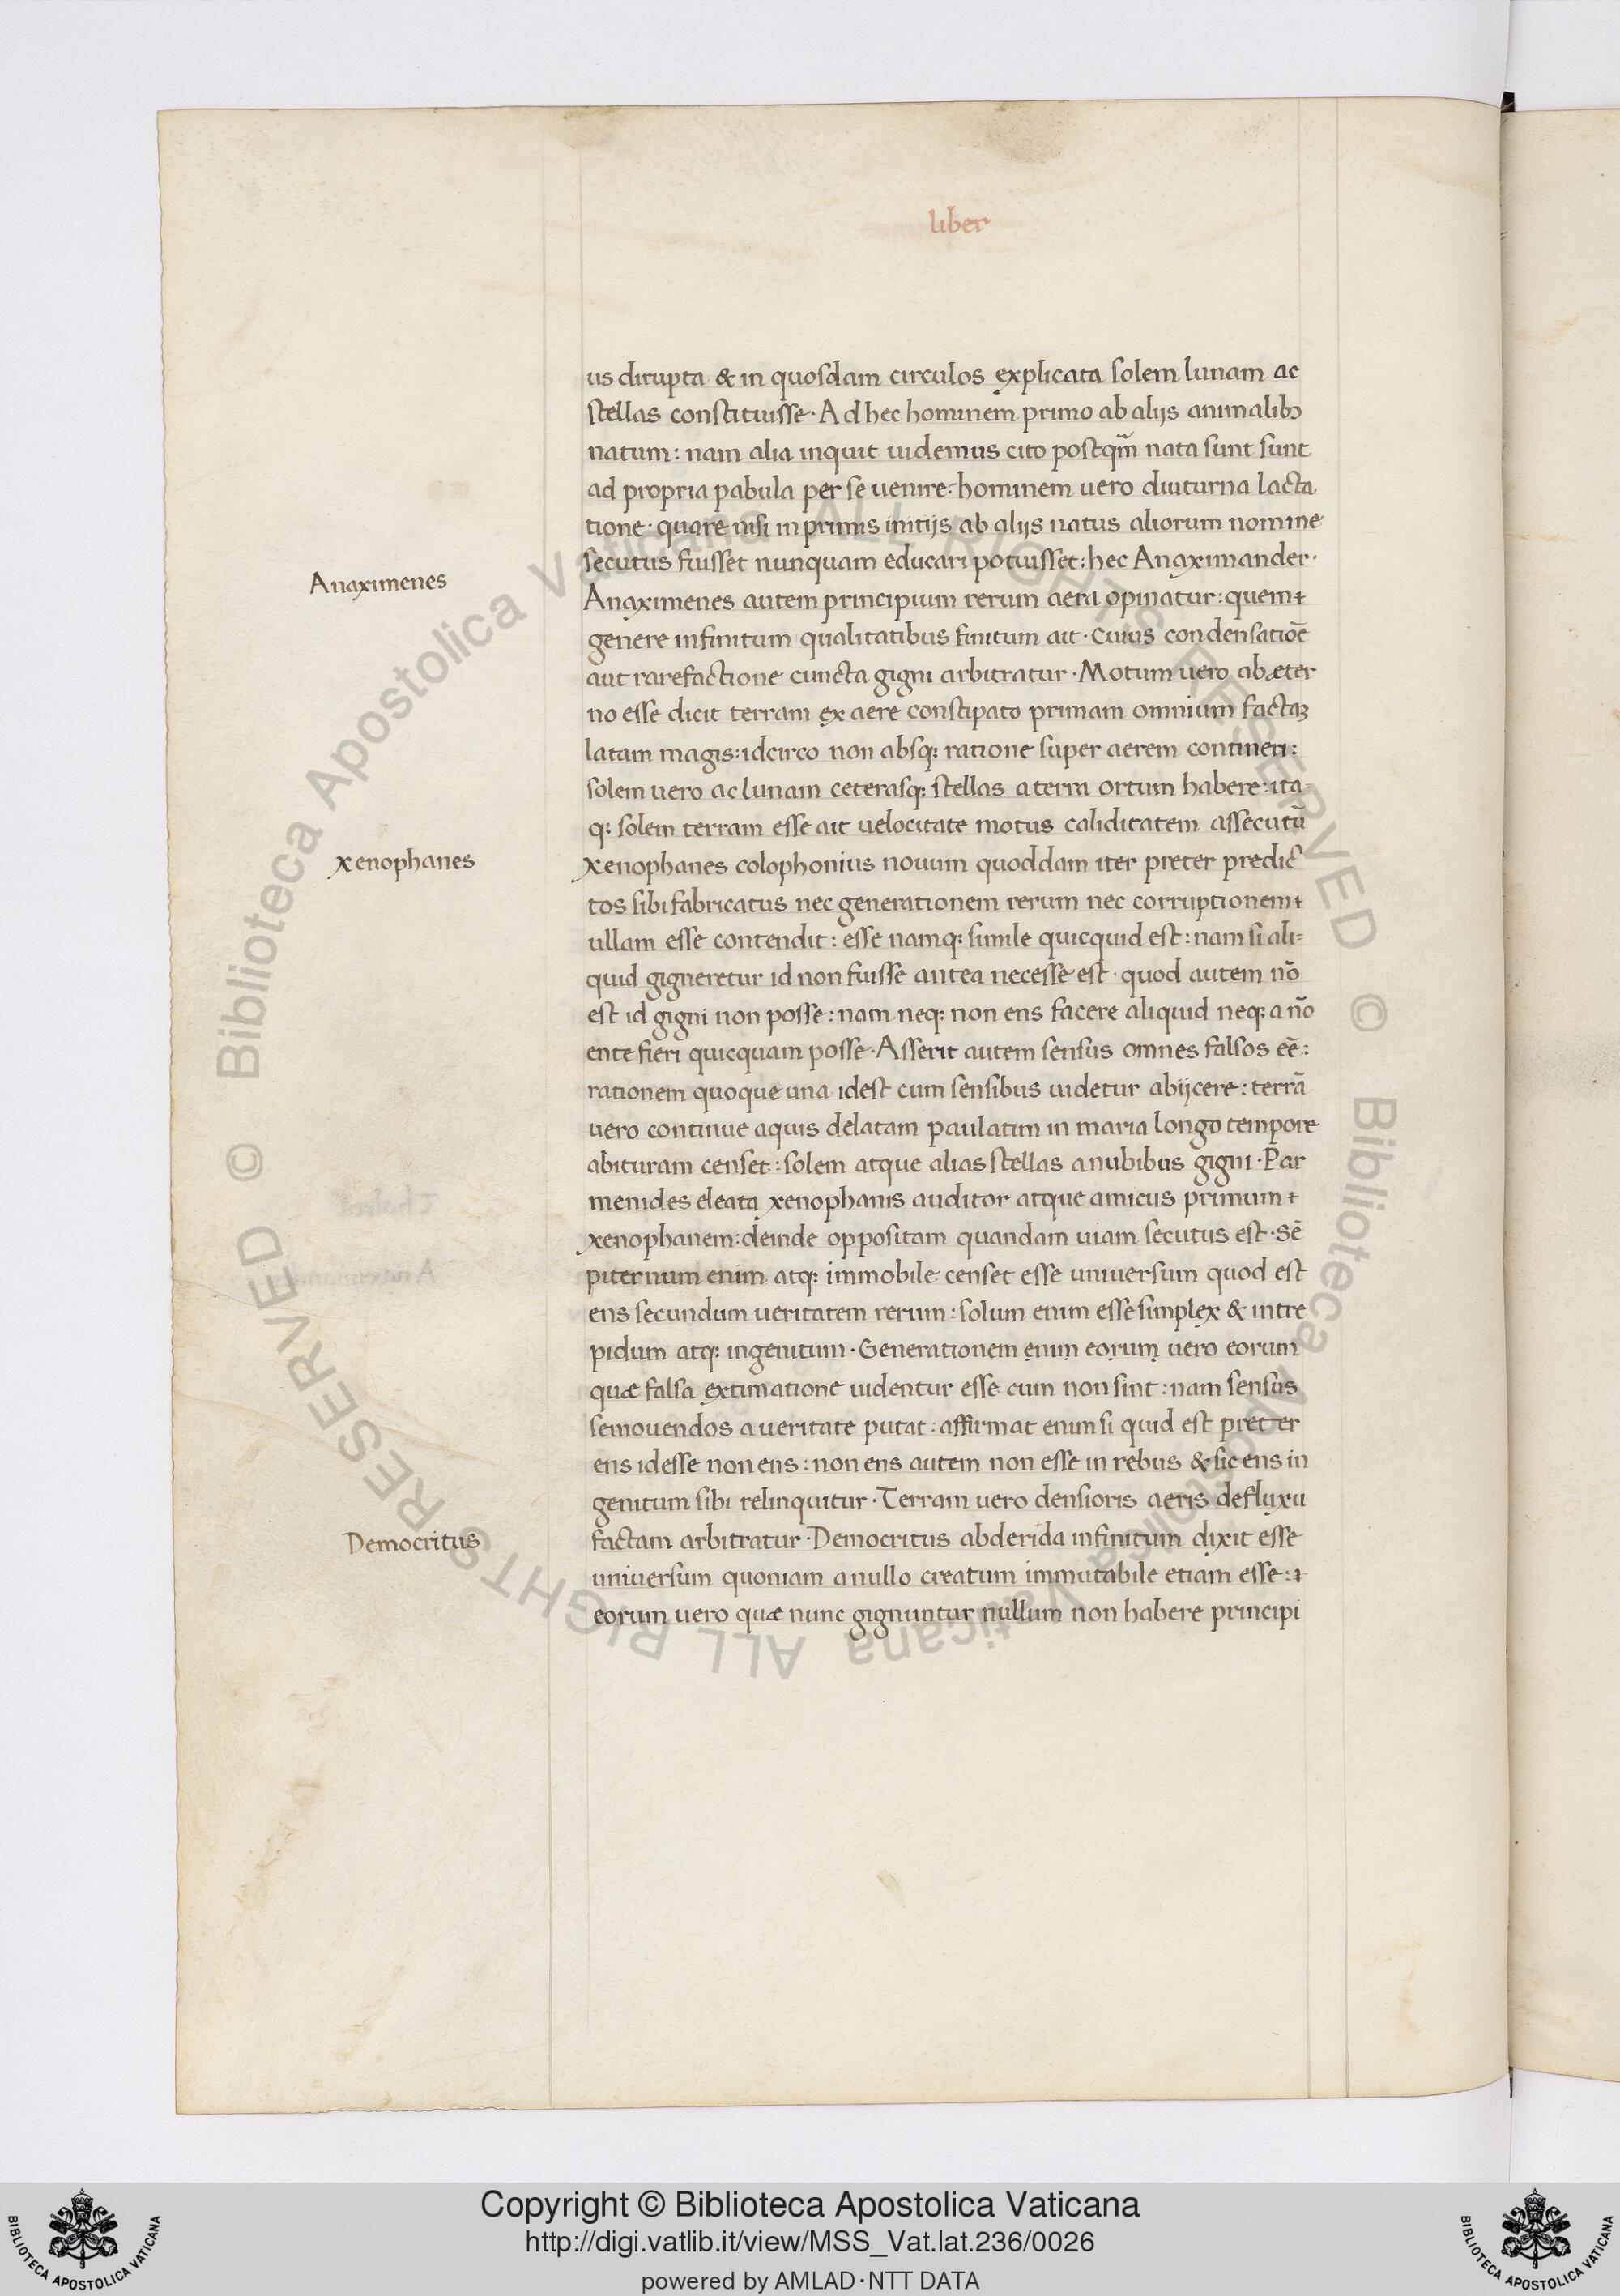 liber
us dirupta & in quosdam circulos explicata solem lunam ac
stellas constituisse · Ad hec hominem primo ab alijs animalibꝫ
natum : nam alia inquit uidemus cito postqm̃ nata sunt sunt
ad propria pabula per se uenire : hominem uero diuturna lacta
tione · quare nisi in primis initijs ab alijs natus aliorum nomine
secutus fuisset nunquam educari potuisset : hec Anaximander ·
Anaximenes
Anaximenes autem principium rerum aera opinatur : quem
genere infinitum qualitatibus finitum ait · cuius condensatiōe
aut rarefactione cuncta gigni arbitratur · Motum uero ab æter
no esse dicit terram ex aere constipato primam omnium factaꝫ
latam magis : idcirco non absq: ratione super aerem contineri :
solem uero ac lunam ceterasq: stellas a terra ortum habere : ita-
q: solem terram esse ait uelocitate motus caliditatem assecutū
Xenophanes
Xenophanes colophonius nouum quoddam iter preter predic
tos sibi fabricatus nec generationem rerum nec corruptionem
ullam esse contendit : esse namq: simile quicquid est : nam si ali=
quid gigneretur id non fuisse antea necesse est · quod autem nō
est id gigni non posse : nam neq: non ens facere aliquid neq: a nō
ente fieri quicquam posse · Asserit autem sensus omnes falsos eē :
rationem quoque una idest cum sensibus uidetur abijcere : terrā
uero continue aquis delatam paulatim in maria longo tempore
abituram censet : solem atque alias stellas a nubibus gigni · Par
menides eleata xenophanis auditor atque amicus primum
xenophanem : deinde oppositam quandam uiam secutus est · sē
piternum enim atq: immobile censet esse uniuersum quod est
ens secundum ueritatem rerum : solum enim esse simplex & intre
pidum atq: ingenitum · Generationem enim eorum uero eorum
quæ falsa extimatione uidentur esse cum non sint : nam sensus
semouendos a ueritate putat : affirmat enim si quid est preter
ens id esse non ens : non ens autem non esse in rebus & sic ens in
genitum sibi relinquitur · Terram uero densioris aeris defluxu
Democritus
factam arbitratur · Democritus abderida infinitum dixit esse
uniuersum quoniam a nullo creatum immutabile etiam esse :
eorum uero quæ nunc gignuntur nullum non habere principi
© Biblioteca Apostolica Vaticana ALL RIGHTS RESERVED © Biblioteca Apostolica Vaticana ALL RIGHTS RESERVED
Copyright © Biblioteca Apostolica Vaticana
http://digi.vatlib.it/view/MSS_Vat.lat.236/0026
powered by AMLAD·NTT DATA
BIBLIOTECA APOSTOLICA VATICANA
BIBLIOTECA APOSTOLICA VATICANA